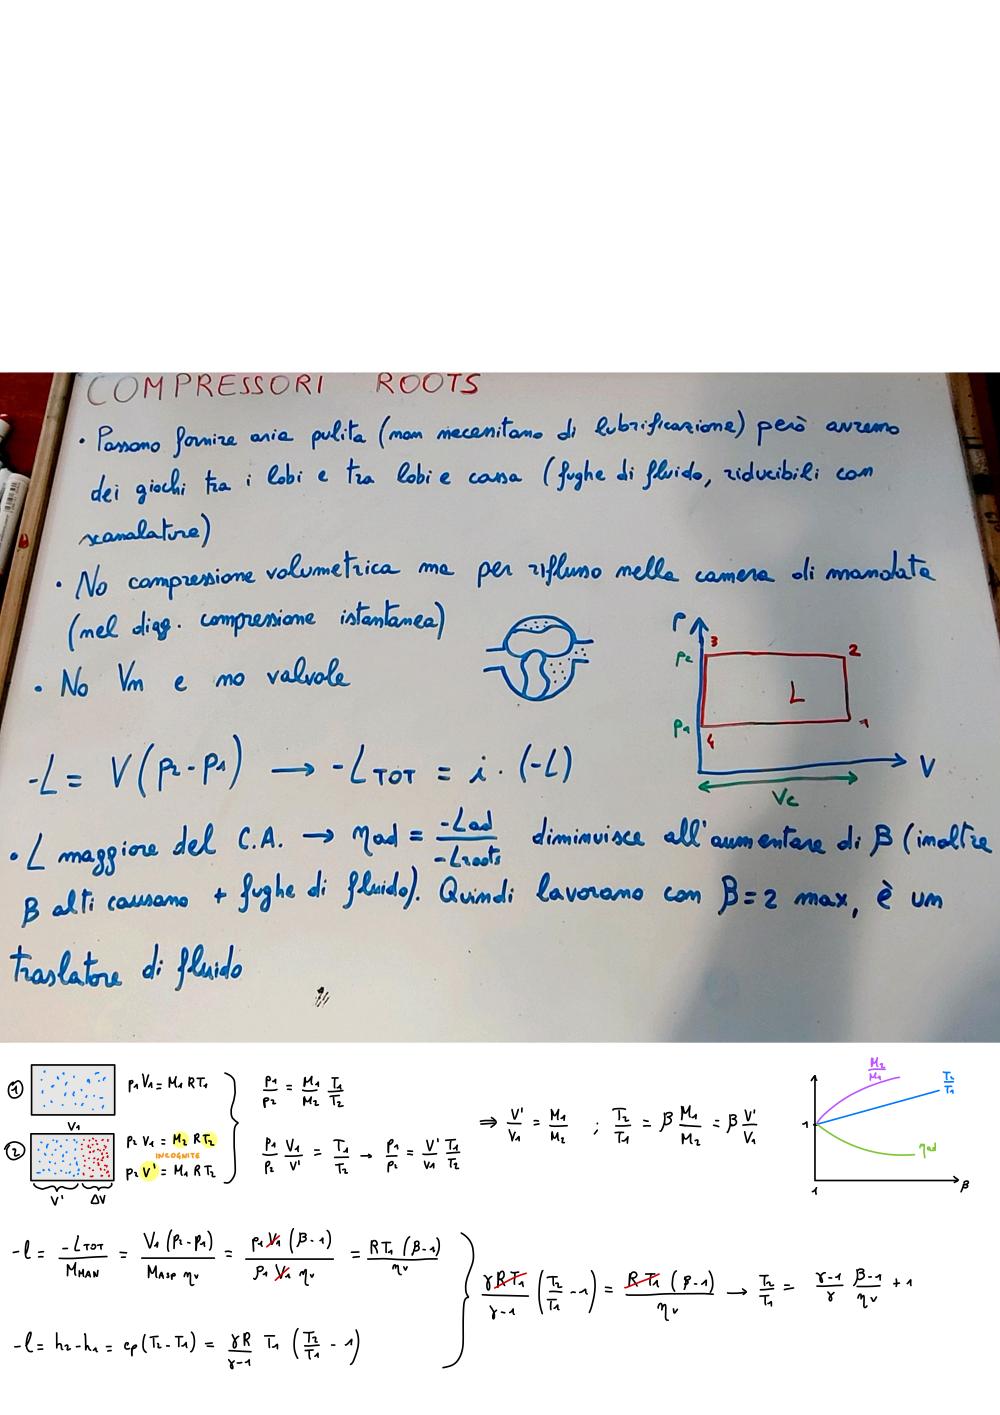 COMPRESSORI ROOTS
• Possono fornire aria pulita (non necessitano di lubrificazione) però avremo
dei giochi tra i lobi e tra lobi e cassa (fughe di fluido, riducibili con
scanalature)
• No compressione volumetrica ma per riflusso nella camera di mandata
(nel diag. compressione istantanea)
• No Vm e no valvole
P
3
p2
2
L
p1
4
1
V
Vc
-L = V(p2-p1) → -LTOT = i · (-L)
• L maggiore del C.A. → ηad = -Lad / -Lroots diminuisce all'aumentare di β (inoltre
β alti causano + fughe di fluido). Quindi lavorano con β=2 max, è un
traslatore di fluido
① p1 V1 = M1 R T1
V1
② p2 V1 = M2 R T2
INCOGNITE
p2 V' = M1 R T2
V' ΔV
p1/p2 = M1/M2 T1/T2
p1/p2 V1/V' = T1/T2 → p1/p2 = V'/V1 T1/T2
⇒ V'/V1 = M1/M2 ; T2/T1 = β M1/M2 = β V'/V1
M2/M1
T2/T1
1
ηad
1
β
-l = -LTOT/MMAN = V1 (p2-p1)/MASP ηv = p1 V1 (β-1)/ρ1 V1 ηv = RT1 (β-1)/ηv
-l = h2-h1 = cp(T2-T1) = γR/γ-1 T1 (T2/T1 - 1)
γRT1/γ-1 (T2/T1 -1) = RT1 (β-1)/ηv → T2/T1 = γ-1/γ β-1/ηv + 1